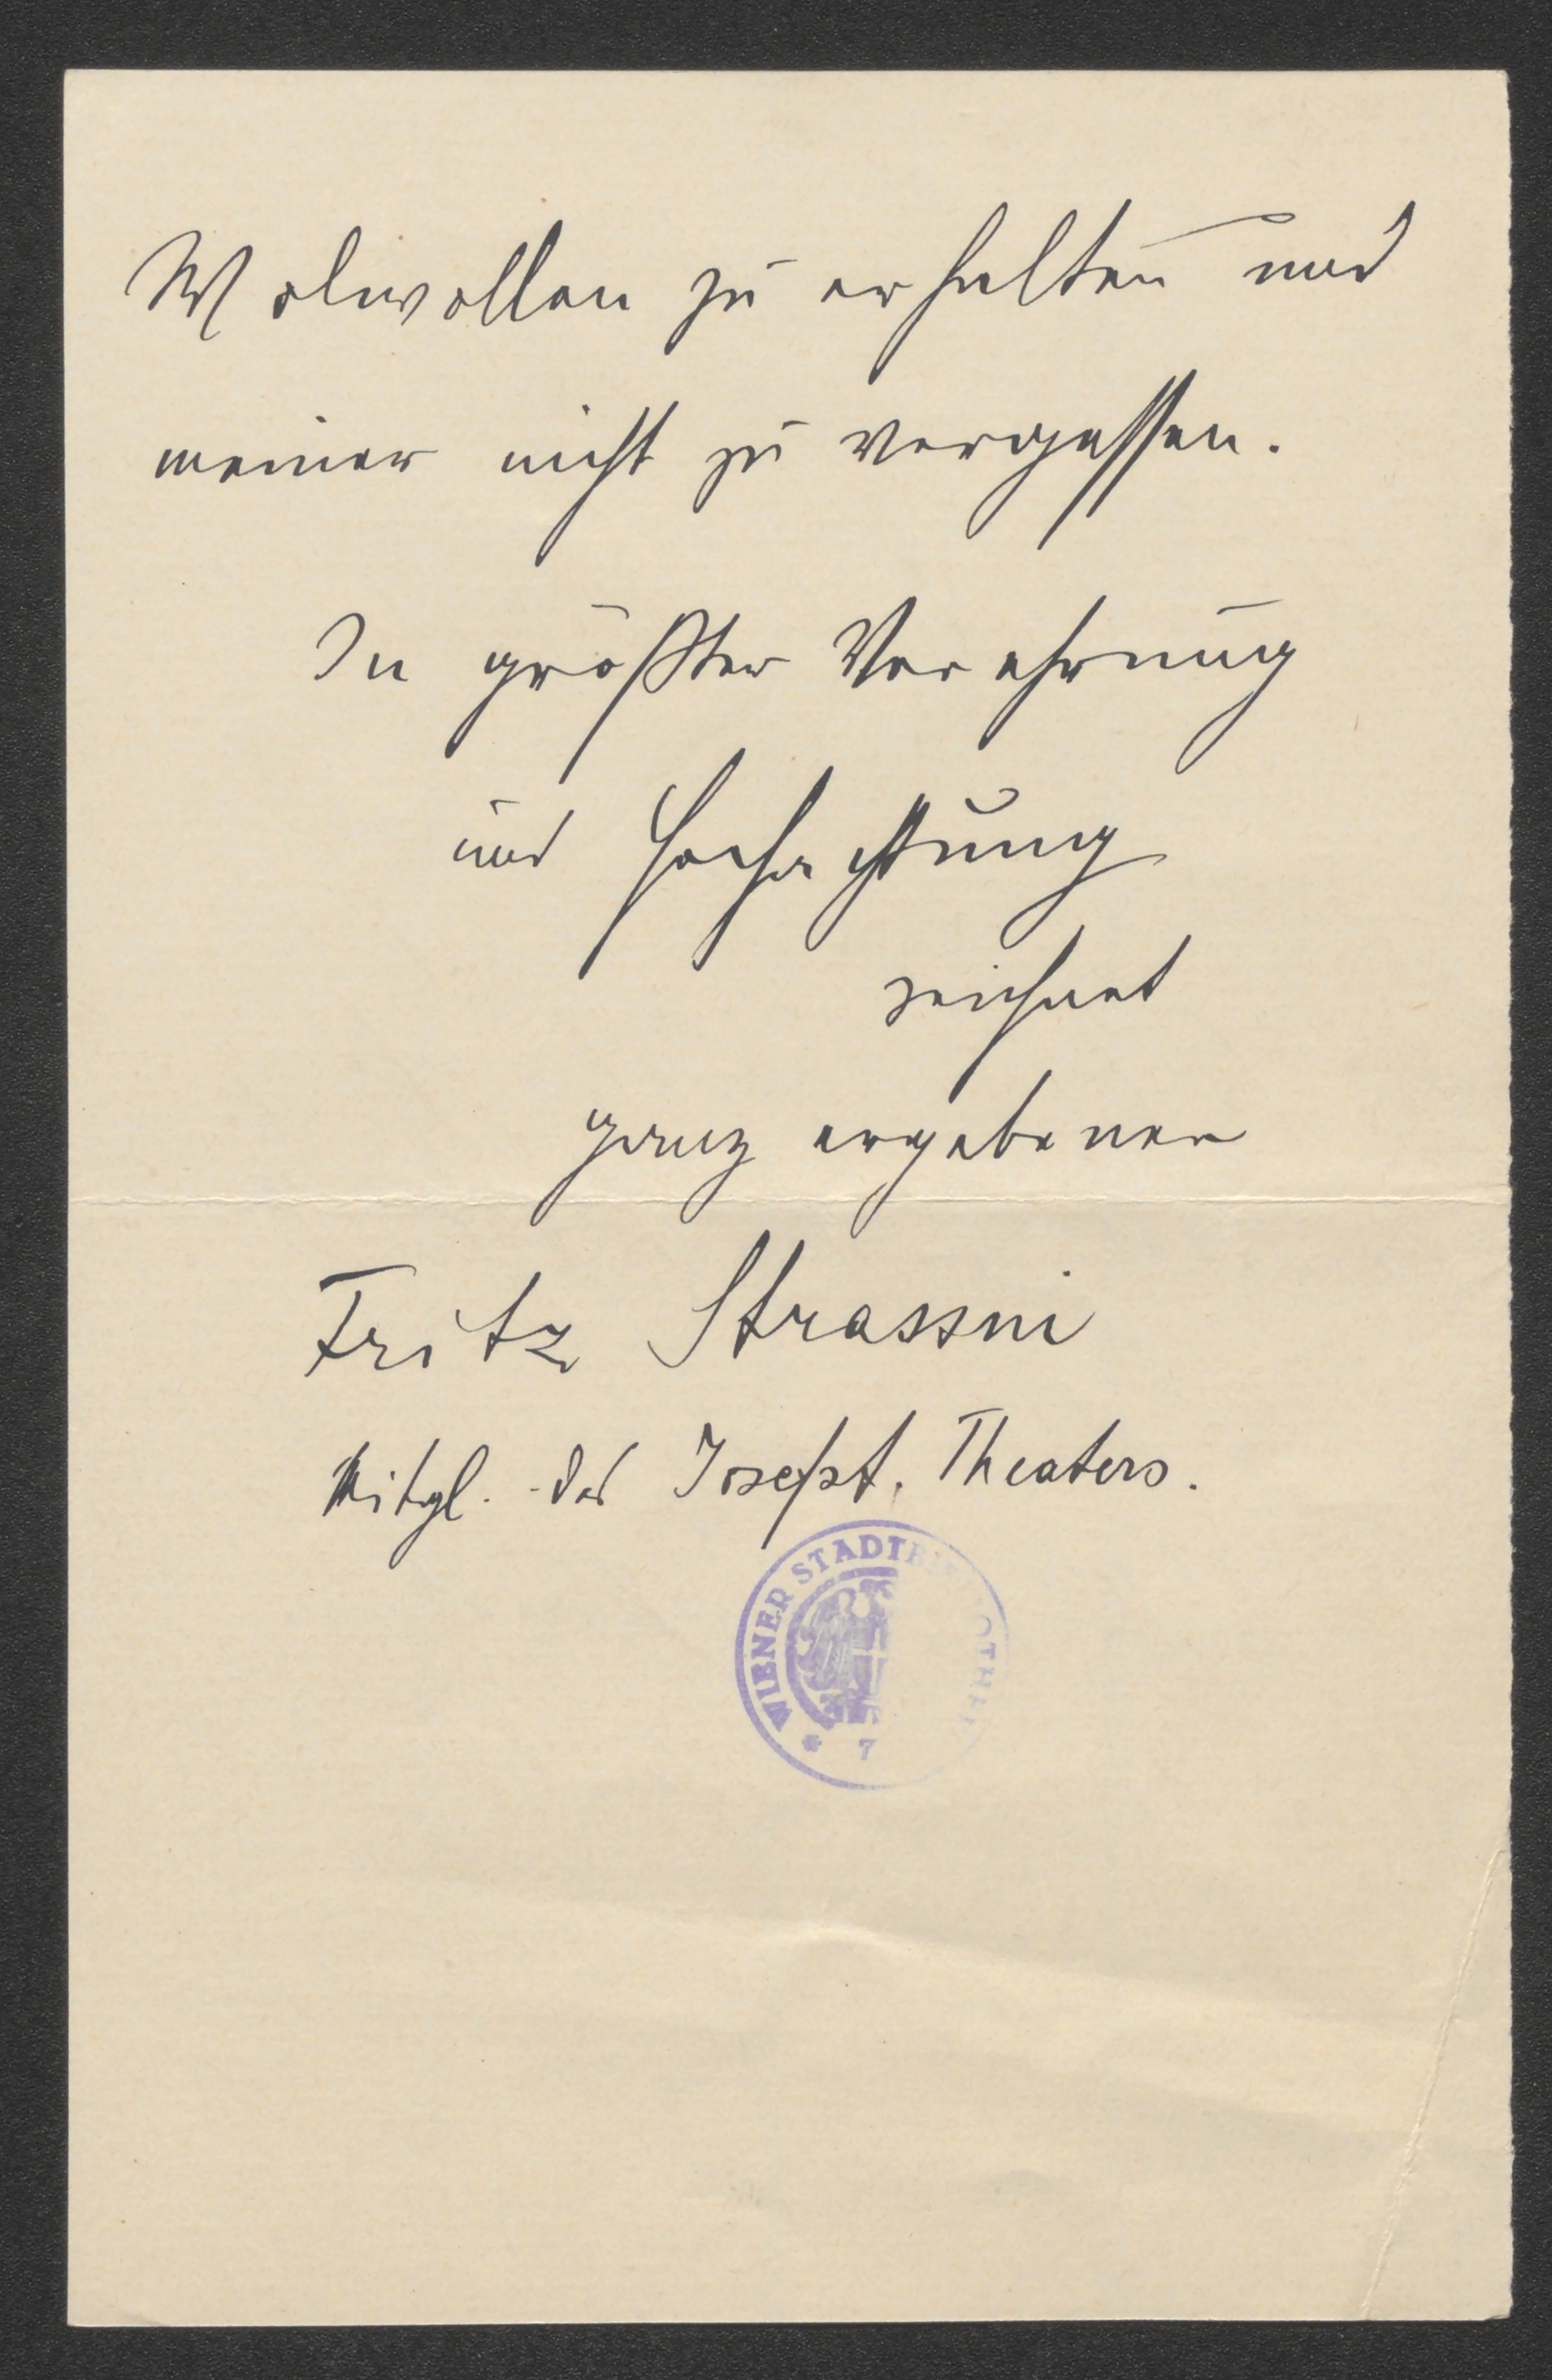 Wolwollen zu erhalten und
meiner nicht zu vergessen.
In größter Verehrung
und Hochachtung
zeichnet
ganz ergebener
Fritz Strassni
Mitgl. des Josefst. Theaters.
WIENER STADTBIBLIOTHEK
* 7